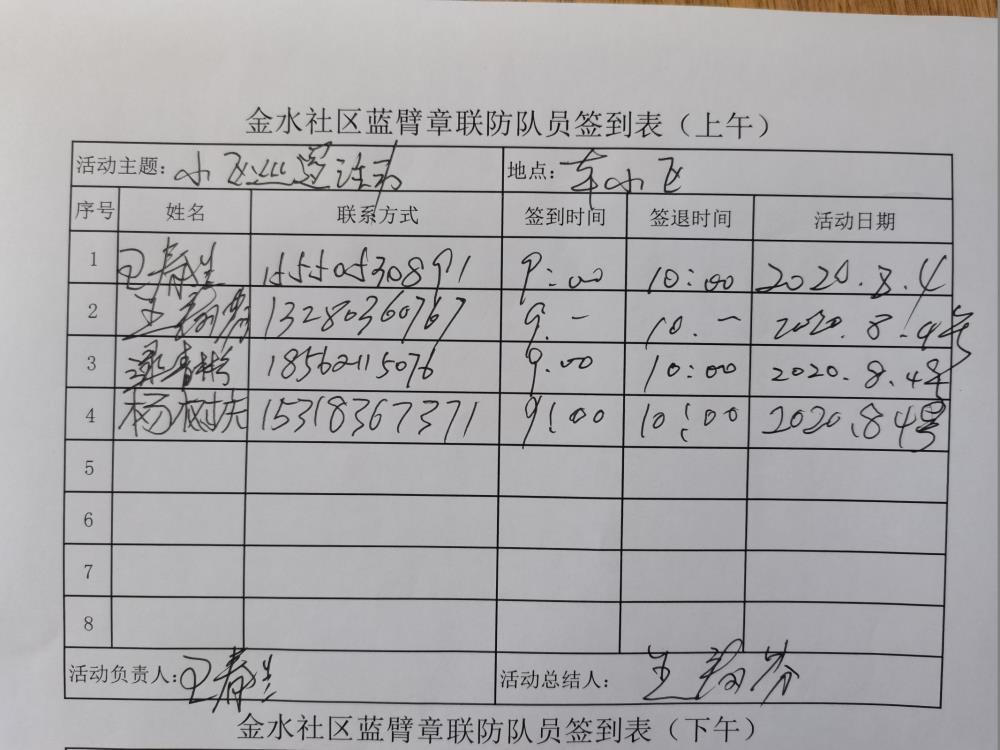 金水社区蓝臂章联防队员签到表（上午）
活动主题：小区巡逻活动 地点：车小区
序号 姓名 联系方式 签到时间 签退时间 活动日期
1 王春生 15550530891 9:00 10:00 2020.8.4
2 王 13280360767 9.一 10.一 2020.8.4号
3 梁春彬 18562115076 9.00 10:00 2020.8.4号
4 杨树庆 15318367371 9:00 10:00 2020.8 4号
5
6
7
8
活动负责人：王春生 活动总结人：王
金水社区蓝臂章联防队员签到表（下午）